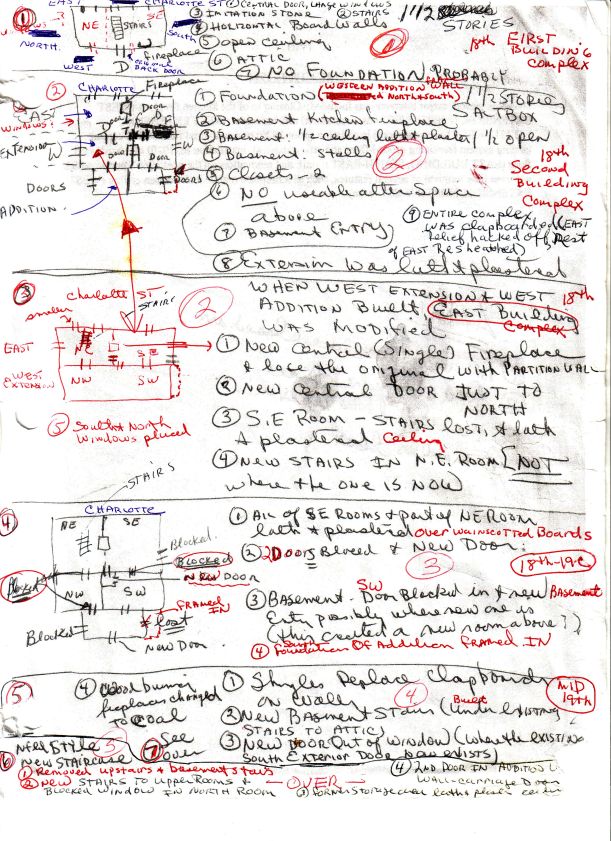 EAST CHARLOTTE ST
① NE SE STAIRS
NORTH. South
Fireplace
West D ORIGINAL BACK DOOR
② CENTRAL DOOR, LARGE WINDOWS
③ IMITATION STONE ② STAIRS
④ HORIZONTAL Board Walls
⑤ open ceiling
⑥ ATTIC
⑦ NO FOUNDATION PROBABLY
1 1/2 STORIES
① 18th FIRST BUILDING COMPLEX
② CHARLOTTE Fireplace
EAST
WINDOWS
EXTENSION
W
DOORS
ADDITION
DOORS
① Foundation (WESTERN ADDITION WALL NORTH + SOUTH)
1 1/2 STORIES
SALTBOX
② Basement Kitchen Fireplace
③ Basement: 1/2 ceiling lath + plaster / 1/2 open
④ Basement: Stalls
⑤ Closets - 2
②
18th Second Building Complex
⑥ NO usable attic Space above
⑦ Basement ENTRY
⑨ ENTIRE complex WAS clapboarded (EAST
relief hacked off, Rest
of EAST Resheathed)
⑧ Extension was lath + plastered
③ Charlotte ST.
STAIRS
EAST
WEST EXTENSION
NE SE
NW SW
⑤ South + North Windows placed
②
WHEN WEST EXTENSION + WEST 18th
ADDITION Built, EAST Building Complex
WAS MODIFIED
① New Central (Single) Fireplace
+ lose the original WITH PARTITION WALL
② New Central DOOR JUST TO
NORTH
③ S.E ROOM - STAIRS LOST, + lath
+ plastered Ceiling
④ NEW STAIRS IN N.E. ROOM [NOT
where the one is NOW]
STAIRS
④ CHARLOTTE
NE SE
Blocked
BLOCKED
NEW DOOR
Blocked
NW SW
FRAMED IN
lost
Blocked
New Door
① All of SE Rooms + part of NE ROOM
lath + plastered over wainscotted Boards
② 2 DOORS Blocked + New Door.
③
18th-19c
③ Basement. SW Door Blocked in + new Basement
Entry possibly where new one is
(this created a new room above?)
④ South Foundation Of Addition FRAMED IN
⑤
④ Wood burning fireplaces changed to Coal
① Shingles Replace Clapboards
on Walls
④
MID 19th
② New Basement Stairs Built (Under existing
STAIRS TO ATTIC)
③ New Door Out of Window (where the existing
South Exterior Door now exists)
⑥ New Stile ⑤
NEW STAIRCASE
⑦ See Over
① Removed upstairs + basement stairs
② NEW STAIRS TO Upper Rooms +
Blocked WINDOW IN NORTH ROOM
OVER
④ 2ND DOOR IN ADDITION
Wall-carriage Door